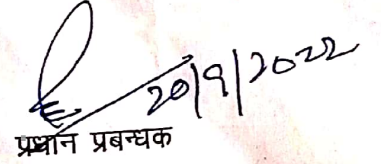 20/9/2022
प्रधान प्रबन्धक